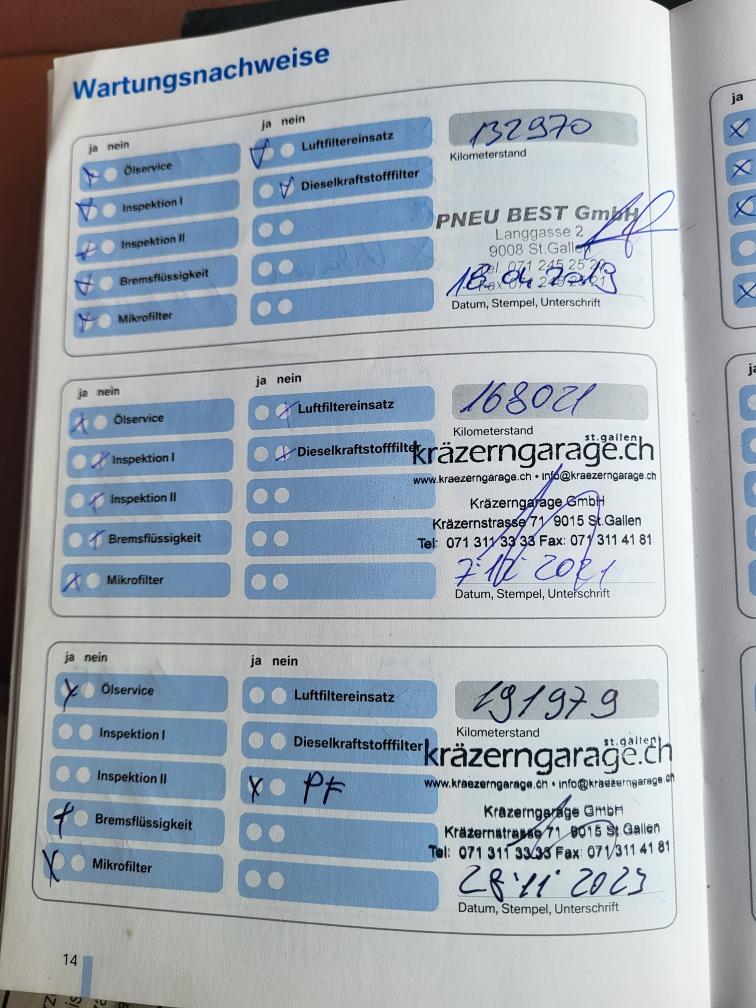 Wartungsnachweise
ja nein
Ölservice
Inspektion I
Inspektion II
Bremsflüssigkeit
Mikrofilter
ja nein
Luftfiltereinsatz
Dieselkraftstofffilter
132970
Kilometerstand
PNEU BEST GmbH
Langgasse 2
9008 St.Gallen
Tel. 071 245 25 20
18.04.2019
Datum, Stempel, Unterschrift
ja nein
Ölservice
Inspektion I
Inspektion II
Bremsflüssigkeit
Mikrofilter
ja nein
Luftfiltereinsatz
Dieselkraftstofffilter
168021
Kilometerstand
st.gallen
kräzerngarage.ch
www.kraezerngarage.ch • info@kraezerngarage.ch
Kräzerngarage GmbH
Kräzernstrasse 71 9015 St.Gallen
Tel: 071 311 33 33 Fax: 071 311 41 81
2021
Datum, Stempel, Unterschrift
ja nein
Ölservice
Inspektion I
Inspektion II
Bremsflüssigkeit
Mikrofilter
ja nein
Luftfiltereinsatz
Dieselkraftstofffilter
PF
191979
Kilometerstand
st.gallen
kräzerngarage.ch
www.kraezerngarage.ch • info@kraezerngarage.ch
Kräzerngarage GmbH
Kräzernstrasse 71 9015 St.Gallen
Tel: 071 311 33 33 Fax: 071 311 41 81
28.11.2023
Datum, Stempel, Unterschrift
14
ja